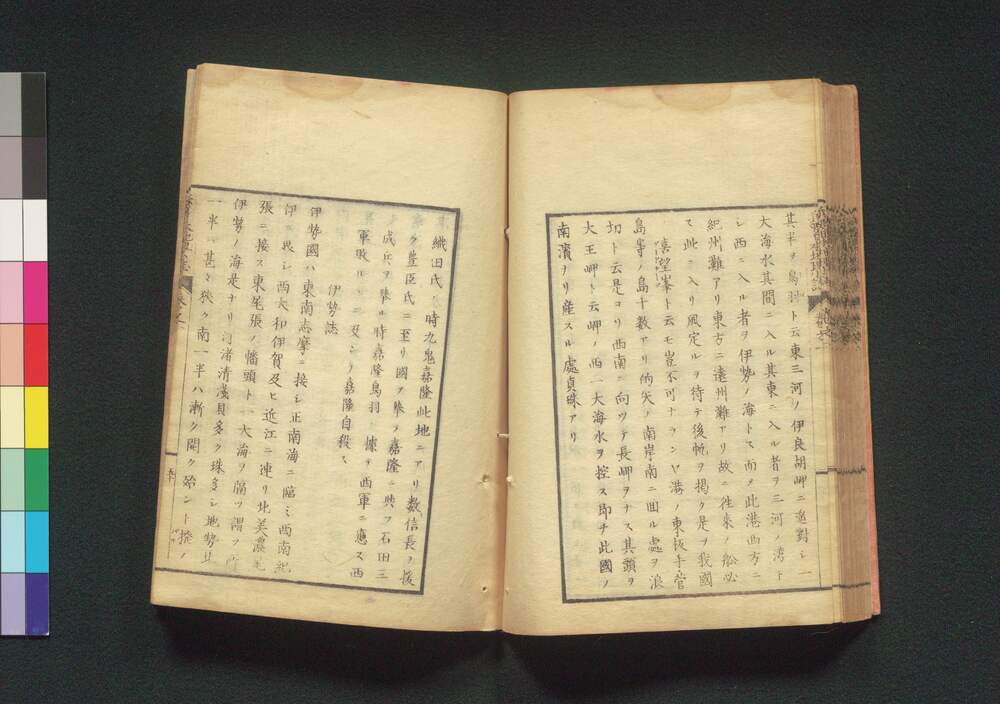 其半ヲ鳥羽ト云東三河ノ伊良胡岬ニ並對シ一
大海水其間ニ入ル其東ニ入ル者ヲ三河ノ湾ト
シ西ニ入ル者ヲ伊勢ノ海トス而メ此港西方ニ
紀州灘アリ東方ニ遠州灘アリ故ニ往来ノ舩必
ス此ニ入リ風定ルヲ待テ後帆ヲ掲ク是ヲ我國
ノ喜望峯ト云モ豈不可ナランヤ港ノ東坂手菅
島等ノ島十数アリ的矢ノ南岸南ニ囲ル處ヲ浪
切ト云是ヨリ西南ニ向ツテ長岬ヲナス其頭ヲ
大王岬ト云岬ノ西一大海水ヲ控ス即チ此國ノ
南濱ナリ産スル處真珠アリ
織田氏ノ時九鬼嘉隆此地ニアリ数信長ヲ援
ク豊臣氏ニ至リ國ヲ挙ケ嘉隆ニ與フ石田三
成兵ヲ挙ル時嘉隆鳥羽ニ據リ西軍ニ應ス西
軍敗ルヽニ及シテ嘉隆自殺ス
伊勢誌
伊勢國ハ東南志摩ニ接シ正南海ニ臨ミ西南紀
伊ニ界シ西大和伊賀及ヒ近江ニ連リ北美濃尾
張ニ接ス東尾張ノ幡頭ト一大海ヲ隔ツ謂フ所
伊勢ノ海是ナリ河渚清淺貝多ク珠多シ地勢北
一半ハ甚タ狭ク南一半ハ漸ク開ク殆ント撥ノ